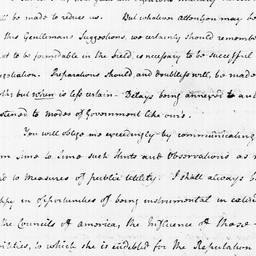 will be made to reduce us. But whatever attention may be
this Gentleman's Suggestions, we certainly should remember
not to be formidable in the Field, is necessary to be successful
negotiation. Preparations should and doubtless will, be made
this but when is less certain - Delays being annexed to and
stened to modes of Government like ours.
You will oblige me exceedingly by communicating
m time to time such Hints and Observations as
to measures of public utility. I shall always be
py in opportunities of being instrumental in
the Councils of America, the Influence of those
ilities, to which she is indebted for the Reputation